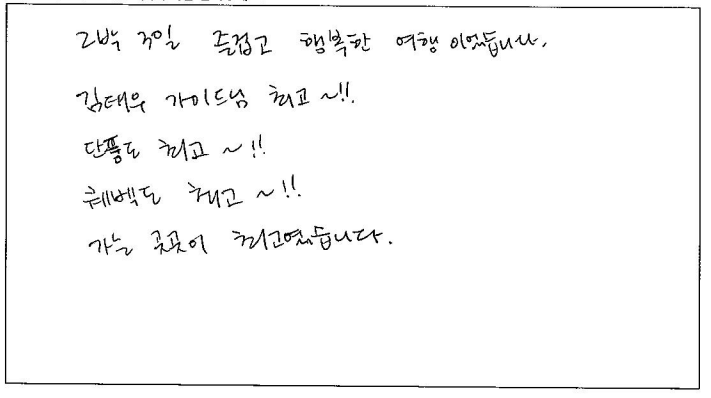 2박 3일 즐겁고 행복한 여행이었습니다.
김태우 가이드님 최고 ~!!.
단풍도 최고 ~!!
퀘벡도 최고 ~!!
가는 곳곳이 최고였습니다.